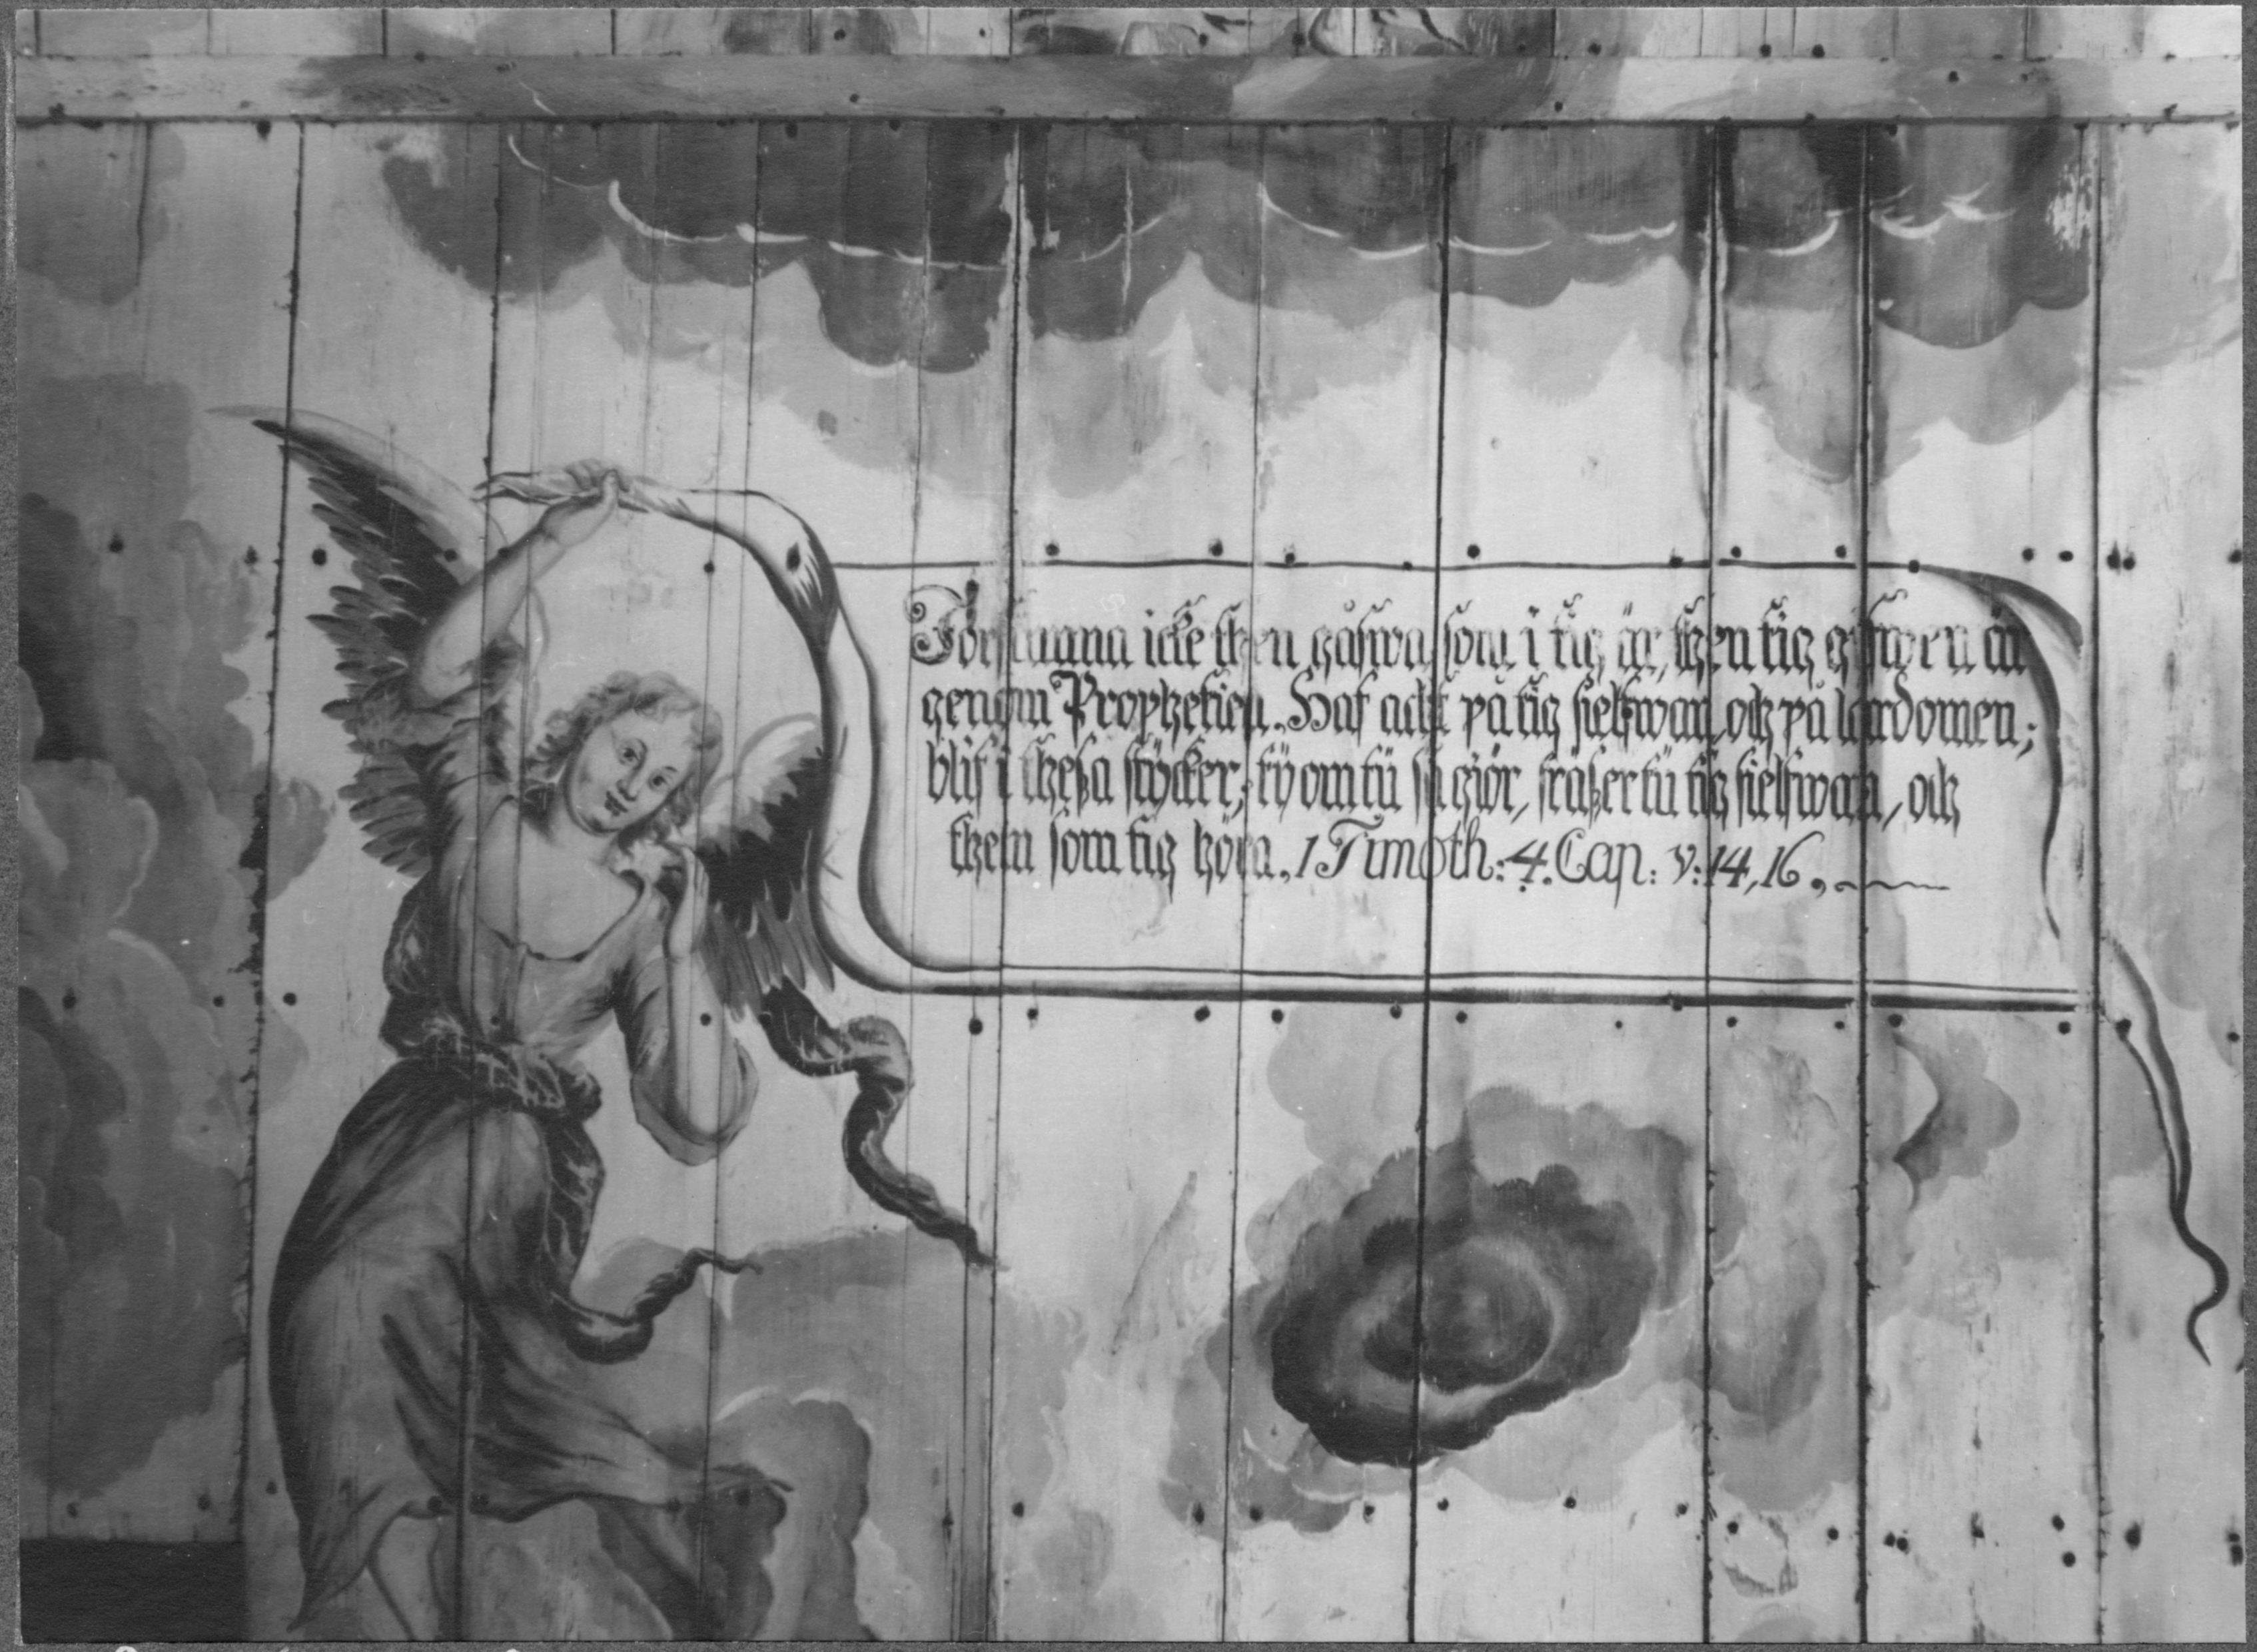 Försumma icke then gåfwa som i tig är, then tig gifwen är
genom Prophetien. Haf acht på tig sielfwan och på lärdomen;
blif i theßa stycker; ty om tu så giör, fräßer tu tig sielfwan, och
them som tig höra. 1 Timoth: 4. Cap: v: 14, 16.